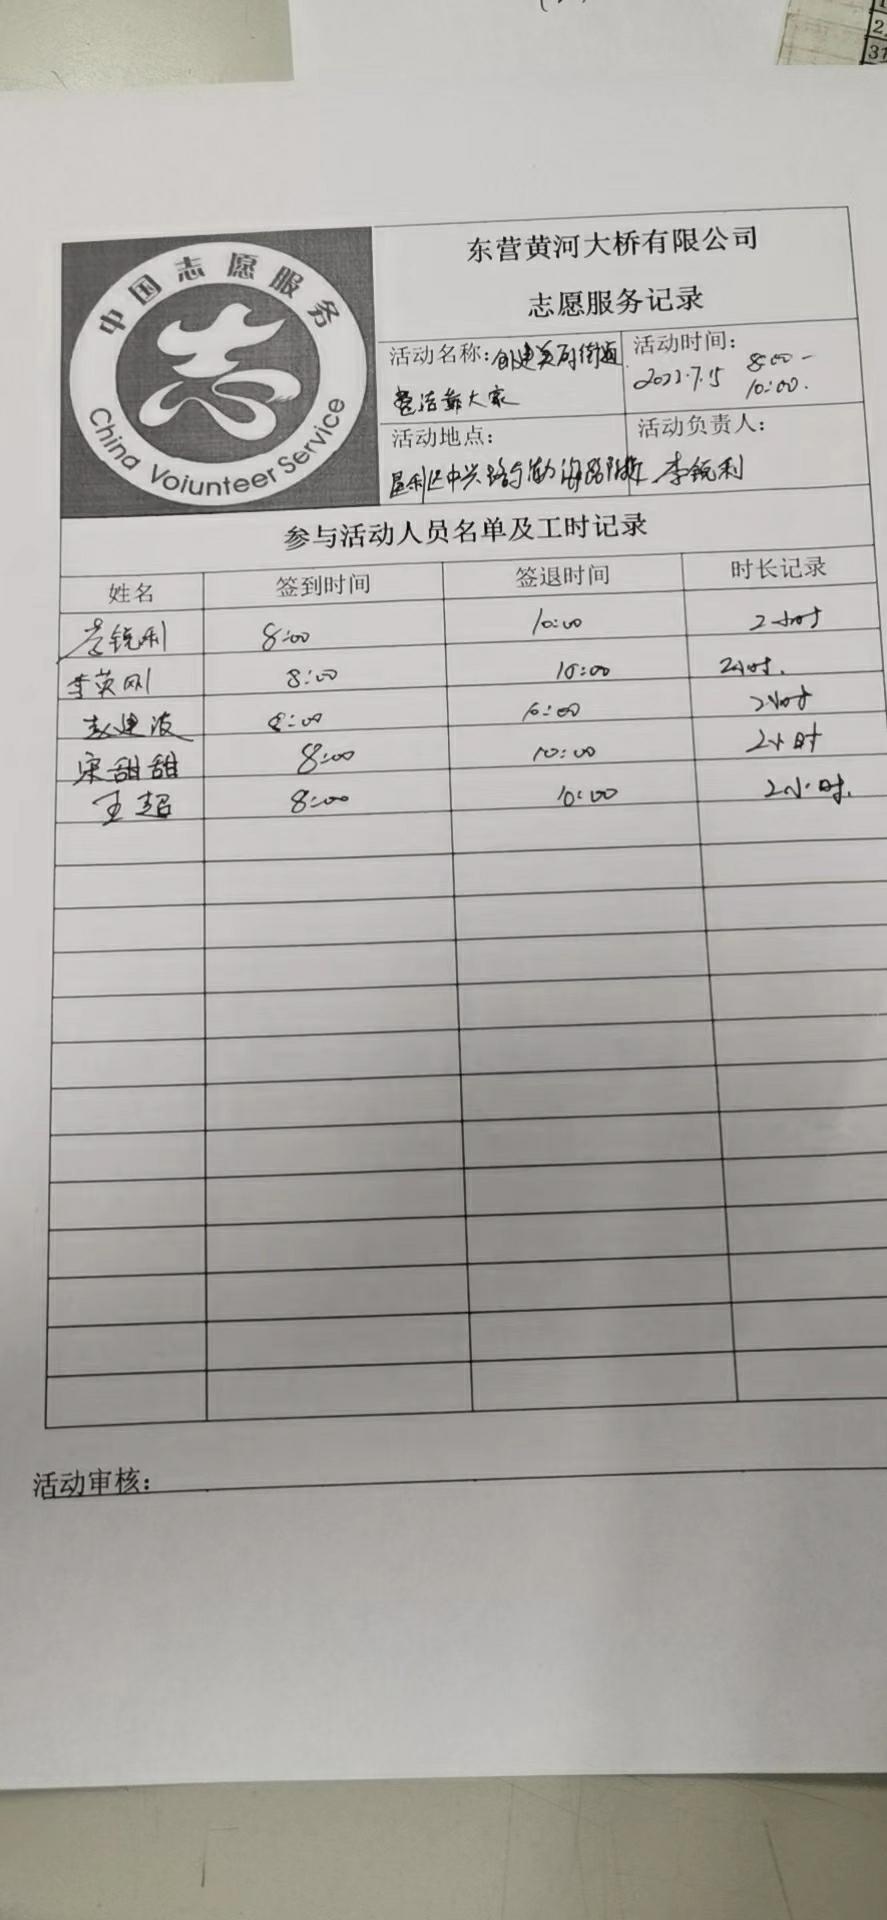 中国志愿服务
China Voiunteer Service
东营黄河大桥有限公司
志愿服务记录
活动名称：创建美丽街道
整洁靠大家
活动时间：
2022.7.15 8:00-
10:00.
活动地点：
垦利区中兴路与渤海路附近
活动负责人：
李锐利
参与活动人员名单及工时记录
姓名 签到时间 签退时间 时长记录
李锐利 8:00 10:00 2小时
李英刚 8:00 10:00 2小时.
赵建波 8:00 10:00 2小时
宋甜甜 8:00 10:00 2小时
王超 8:00 10:00 2小时.
活动审核：